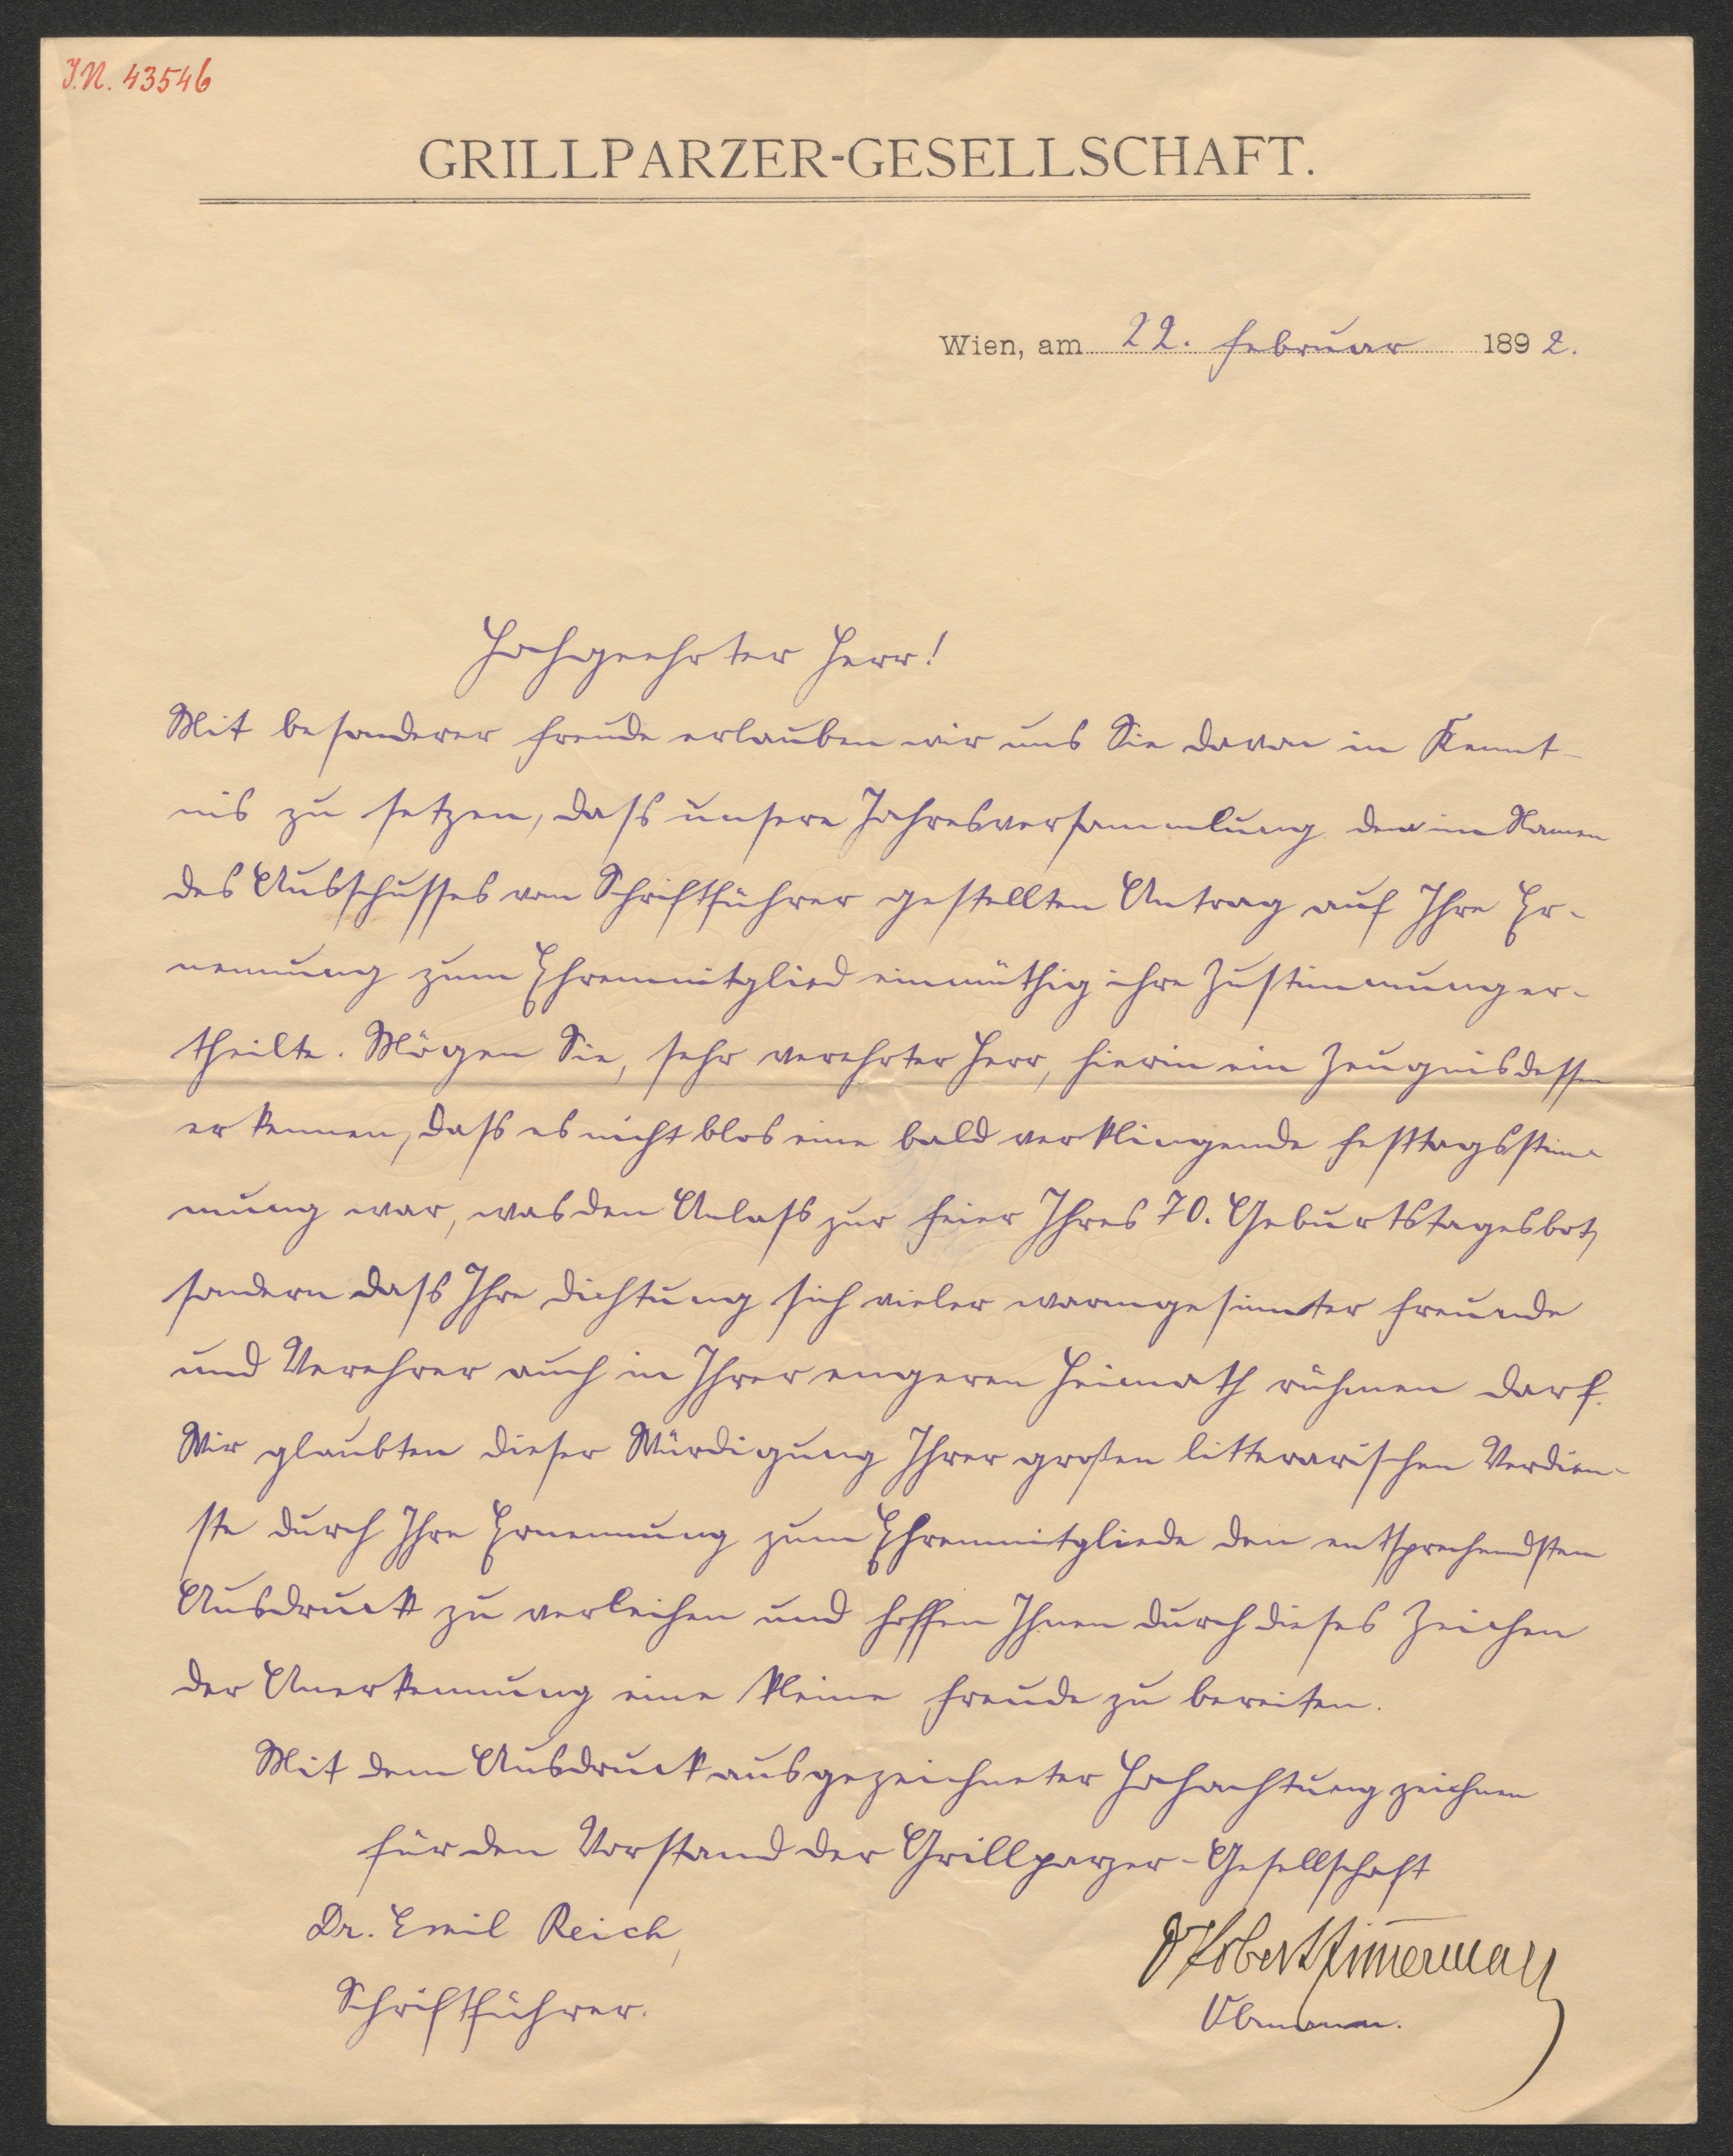 I.N. 43546
GRILLPARZER-GESELLSCHAFT.
Wien, am 22. Februar 1892.
Hochgeehrter Herr!
Mit besonderer Freude erlauben wir uns Sie davon in Kennt-
nis zu setzen, dass unsere Jahresversammlung dem im Namen
des Ausschusses vom Schriftführer gestellten Antrag auf Ihre Er-
nennung zum Ehrenmitglied einmüthig ihre Zustimmung er-
theilte. Mögen Sie, sehr verehrter Herr, hierin ein Zeugnis dessen
erkennen, dass es nicht blos eine bald verklingende Festtagsstim-
mung war, was den Anlass zur Feier Ihres 70. Geburtstages bot,
sondern dass Ihre Dichtung sich vieler warmgesinnter Freunde
und Verehrer auch in Ihrer engeren Heimath rühmen darf.
Wir glaubten dieser Würdigung Ihrer großen litterarischen Verdien-
ste durch Ihre Ernennung zum Ehrenmitgliede den entsprechendsten
Ausdruck zu verleihen und hoffen Ihnen durch dieses Zeichen
der Anerkennung eine kleine Freude zu bereiten.
Mit dem Ausdruck ausgezeichneter Hochachtung zeichnen
für den Vorstand der Grillparzer-Gesellschaft
Dr. Emil Reich,
Schriftführer.
Dr Robert Zimmermann
Obmann.